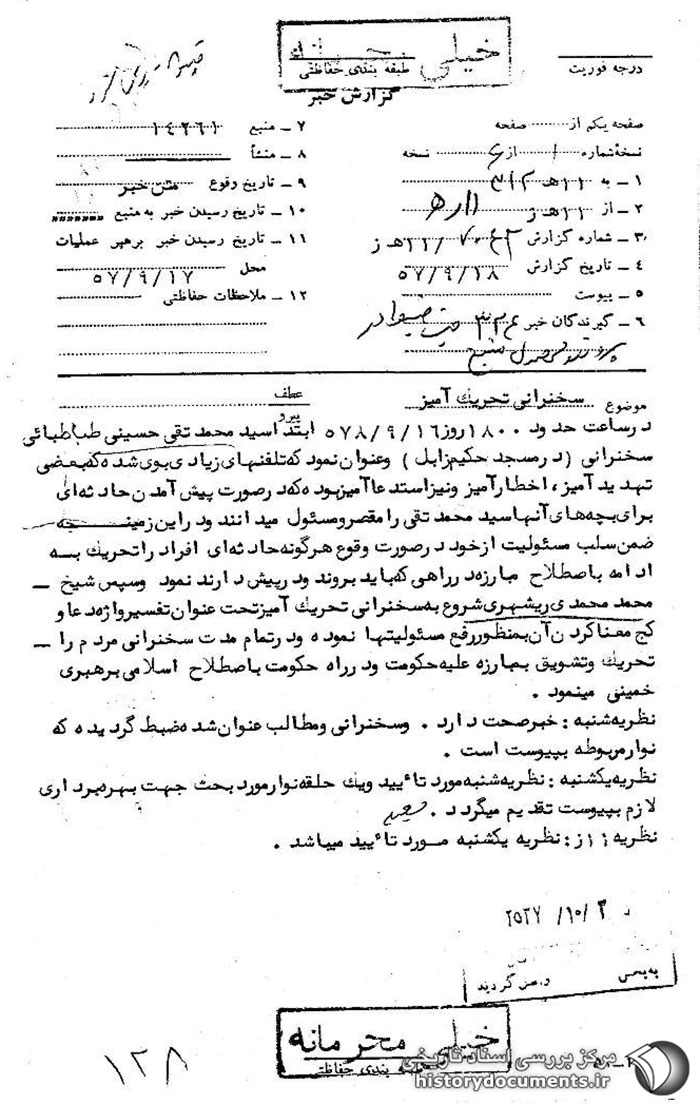 خیلی محرمانه
طبقه بندی حفاظتی
گزارش خبر
درجه فوریت
صفحه یکم از صفحه
نسخهٔ شماره ۱ از ۶ نسخه
۱ ـ به ۱۱هـ ۳۱۲
۲ ـ از ۱۱هـ ز
۳ ـ شماره گزارش ۷۰۴۲/۱۱هـ ز
۴ ـ تاریخ گزارش ۵۷/۹/۱۸
۵ ـ پیوست
۶ ـ گیرندگان خبر
۷ ـ منبع ۱۴۲۶۱
۸ ـ منشأ
۹ ـ تاریخ وقوع متن خبر
۱۰ ـ تاریخ رسیدن خبر به منبع
۱۱ ـ تاریخ رسیدن خبر برهبر عملیات
محل ۵۷/۹/۱۷
۱۲ ـ ملاحظات حفاظتی
موضوع سخنرانی تحریك آمیز
عطف
پیرو
درساعت حدود ۱۸۰۰ روز ۵۷۸/۹/۱۶ ابتدا سید محمد تقی حسینی طباطبائی
سخنرانی (در مسجد حکیم زابل) وعنوان نمود که تلفنهای زیادی بوی شده که بعضی
تهدید آمیز، اخطار آمیز ونیز استدعا آمیز بوده که در صورت پیش آمدن حادثه ای
برای بچه های آنها سید محمد تقی را مقصر و مسئول میدانند ودراین زمینـــجه
ضمن سلب مسئولیت از خود در صورت وقوع هرگونه حادثه ای افراد را تحریك بــه
ادامه باصطلاح مبارزه در راهی که باید بروند ودر پیش دارند نمود وسپس شیخ ـ
محمد محمدی ریشهری شروع به سخنرانی تحریك آمیز تحت عنوان تفسیر واژه دعا و
کج معنا کردن آن بمنظور رفع مسئولیتها نموده ودر تمام مدت سخنرانی مردم را ـ
تحریك وتشویق بمبارزه علیه حکومت ودر راه حکومت باصطلاح اسلامی برهبری
خمینی مینمود .
نظریه شنبه : خبر صحت دارد . وسخنرانی ومطالب عنوان شده ضبط گردیده که
نوار مربوطه بپیوست است .
نظریه یکشنبه : نظریه شنبه مورد تأیید ویك حلقه نوار مورد بحث جهت بهره برداری
لازم بپیوست تقدیم میگردد .
نظریه ۱۱ز : نظریه یکشنبه مــورد تأیید میباشد .
۲۵۳۷/۱۰/۳
به بحی
گردید
خیلی محرمانه
طبقه بندی حفاظتی
۱۲۸
مرکز بررسی اسناد تاریخی
historydocuments.ir